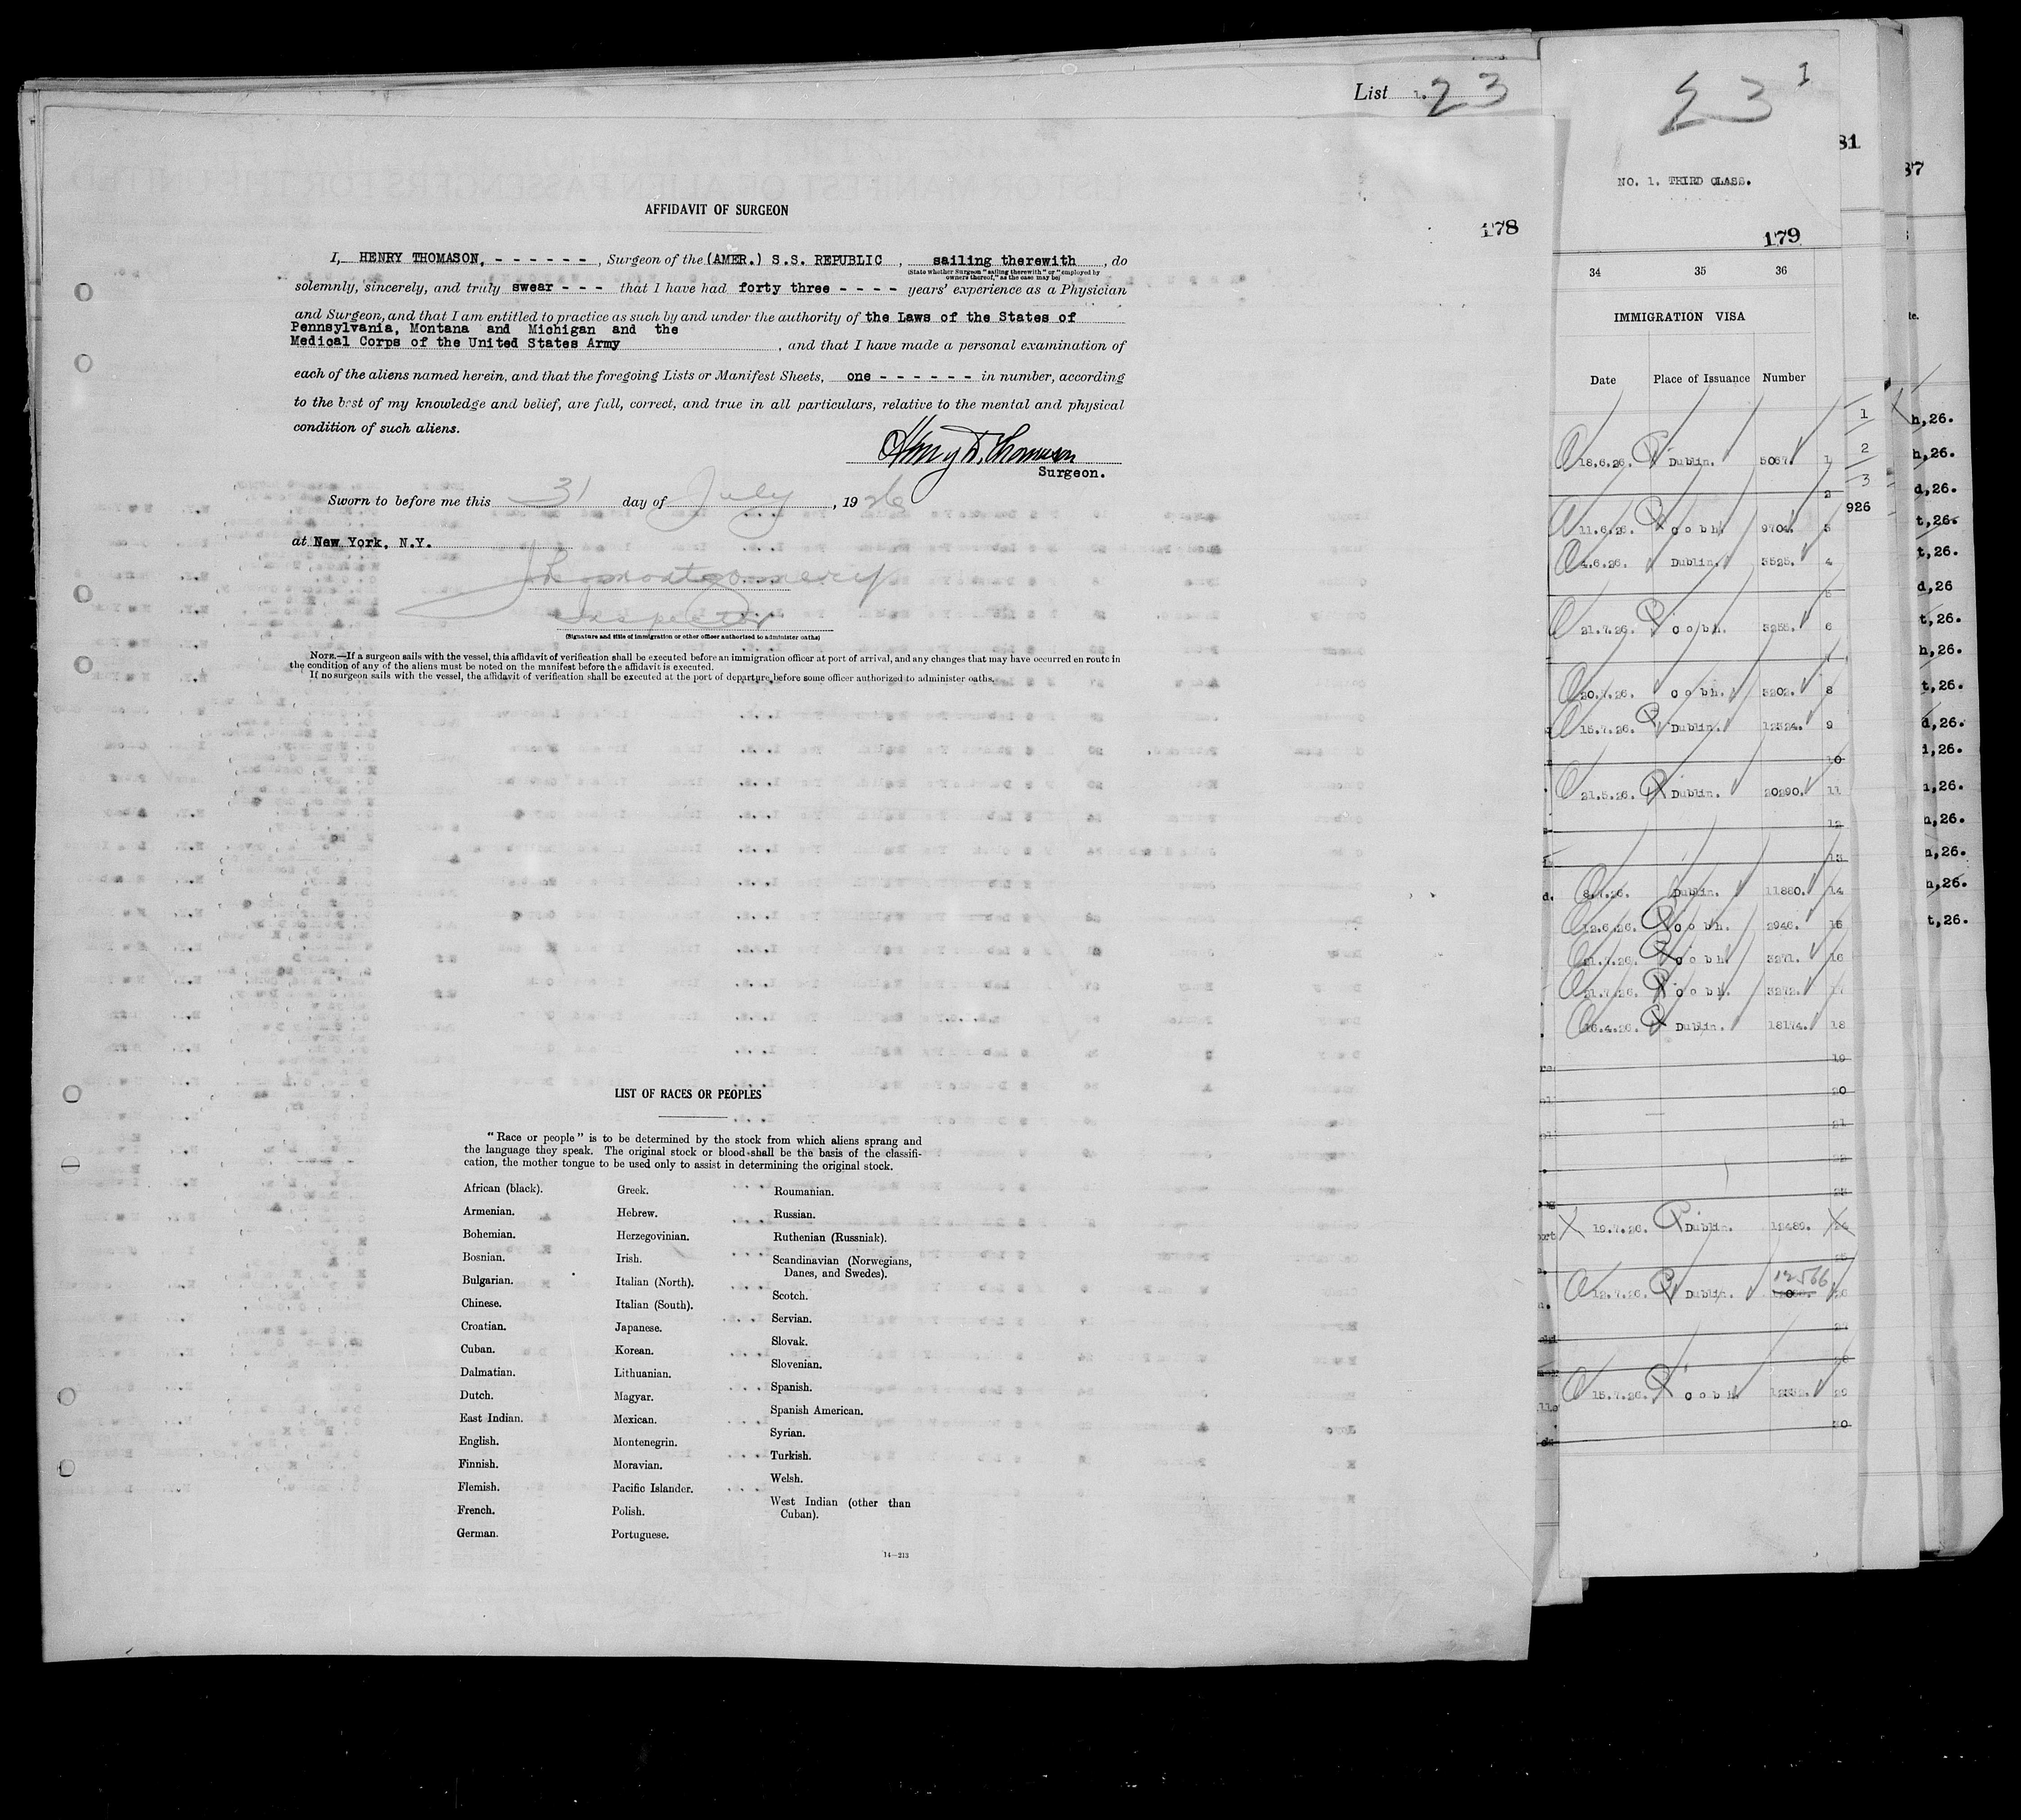 List 1. 23
178
AFFIDAVIT OF SURGEON
I, HENRY THOMASON, - - - - - - , Surgeon of the (AMER.) S.S. REPUBLIC , sailing therewith , do
(State whether Surgeon "sailing therewith" or "employed by
owners thereof," as the case may be)
solemnly, sincerely, and truly swear - - - that I have had forty three - - - - years' experience as a Physician
and Surgeon, and that I am entitled to practice as such by and under the authority of the Laws of the States of
Pennsylvania, Montana and Michigan and the
Medical Corps of the United States Army , and that I have made a personal examination of
each of the aliens named herein, and that the foregoing Lists or Manifest Sheets, one - - - - - - in number, according
to the best of my knowledge and belief, are full, correct, and true in all particulars, relative to the mental and physical
condition of such aliens.
Surgeon.
Sworn to before me this 31 day of July , 1926
at New York, N.Y.
Inspector
(Signature and title of immigration or other officer authorized to administer oaths)
NOTE.—If a surgeon sails with the vessel, this affidavit of verification shall be executed before an immigration officer at port of arrival, and any changes that may have occurred en route in
the condition of any of the aliens must be noted on the manifest before the affidavit is executed.
If no surgeon sails with the vessel, the affidavit of verification shall be executed at the port of departure before some officer authorized to administer oaths.
LIST OF RACES OR PEOPLES
"Race or people" is to be determined by the stock from which aliens sprang and
the language they speak. The original stock or blood shall be the basis of the classifi-
cation, the mother tongue to be used only to assist in determining the original stock.
African (black).
Armenian.
Bohemian.
Bosnian.
Bulgarian.
Chinese.
Croatian.
Cuban.
Dalmatian.
Dutch.
East Indian.
English.
Finnish.
Flemish.
French.
German.
Greek.
Hebrew.
Herzegovinian.
Irish.
Italian (North).
Italian (South).
Japanese.
Korean.
Lithuanian.
Magyar.
Mexican.
Montenegrin.
Moravian.
Pacific Islander.
Polish.
Portuguese.
Roumanian.
Russian.
Ruthenian (Russniak).
Scandinavian (Norwegians,
Danes, and Swedes).
Scotch.
Servian.
Slovak.
Slovenian.
Spanish.
Spanish American.
Syrian.
Turkish.
Welsh.
West Indian (other than
Cuban).
14—213
23 1
NO. 1. THIRD CLASS.
179
34 35 36
IMMIGRATION VISA
Date Place of Issuance Number
18.6.26. Dublin. 5067. 1
2
11.6.26. Cobh. 9704. 3
4.6.26. Dublin. 3525. 4
5
21.7.26. Cobh. 3255. 6
20.7.26. Cobh. 3202. 8
15.7.26. Dublin. 12524. 9
10
21.5.26. Dublin. 20290. 11
12
13
8.7.26. Dublin. 11880. 14
12.6.26. Cobh. 2946. 15
21.7.26. Cobh. 3271. 16
21.7.26. Cobh. 3272. 17
16.4.26. Dublin. 18174. 18
19
20
21
22
23
Dublin. 12489. 24
25
12.7.26. Dublin. 12566 26
27
15.7.26. Cobh. 29
30
81
1
2
3
926
37
h,26.
h,26.
d,26.
t,26.
t,26.
d,26
t,26.
h,26.
t,26.
d,26.
i,26.
n,26.
n,26.
n,26.
h,26.
t,26.